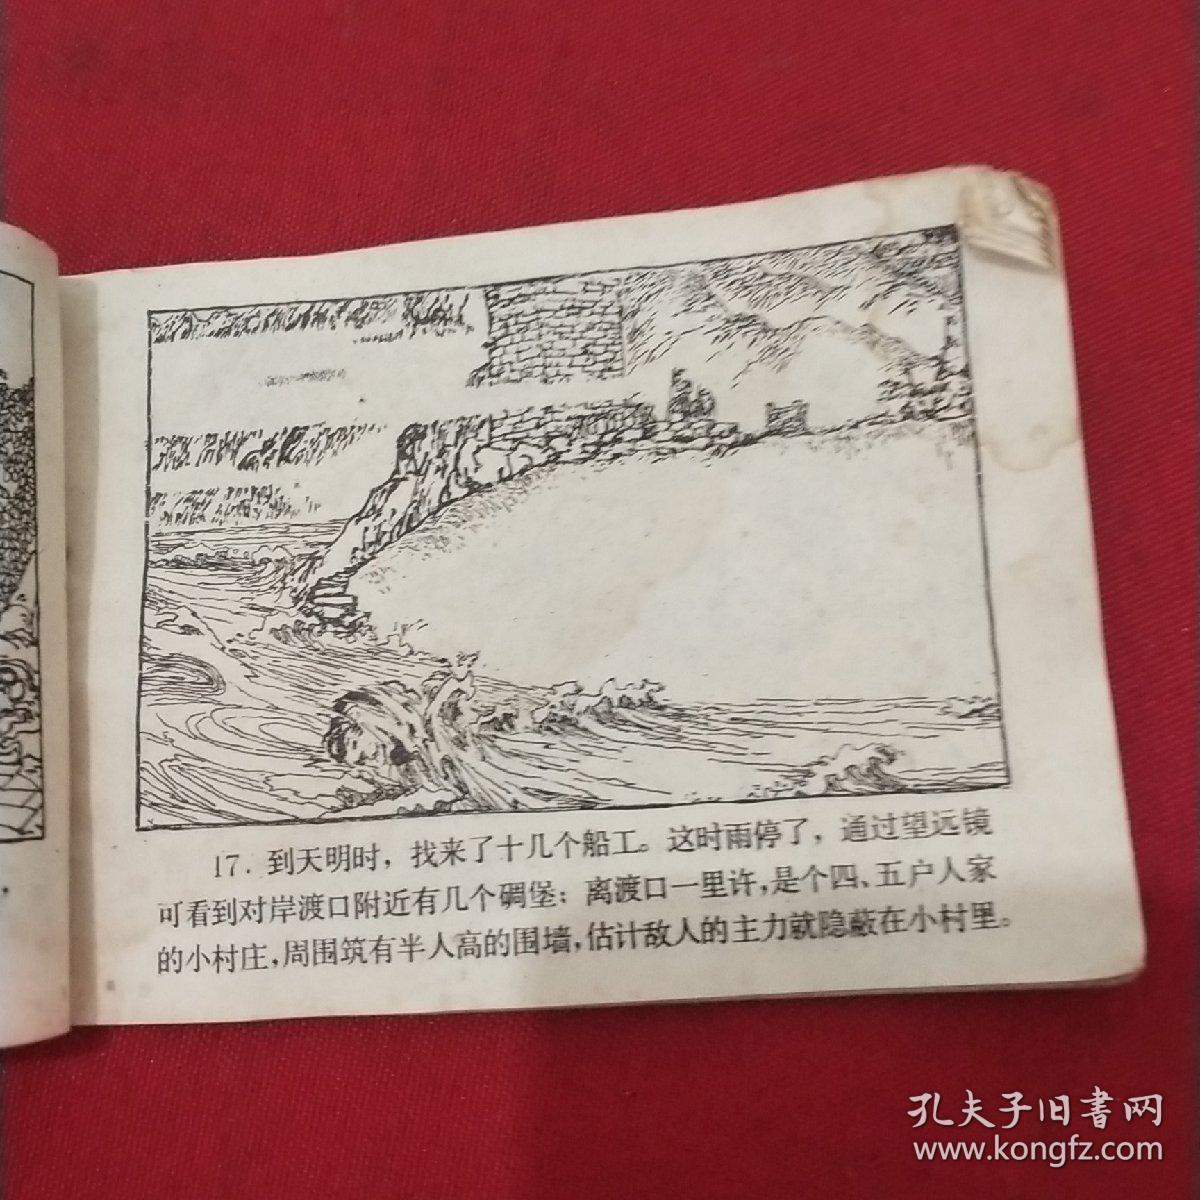 17. 到天明时，找来了十几个船工。这时雨停了，通过望远镜
可看到对岸渡口附近有几个碉堡；离渡口一里许，是个四、五户人家
的小村庄，周围筑有半人高的围墙，估计敌人的主力就隐蔽在小村里。
孔夫子旧書网
www.kongfz.com